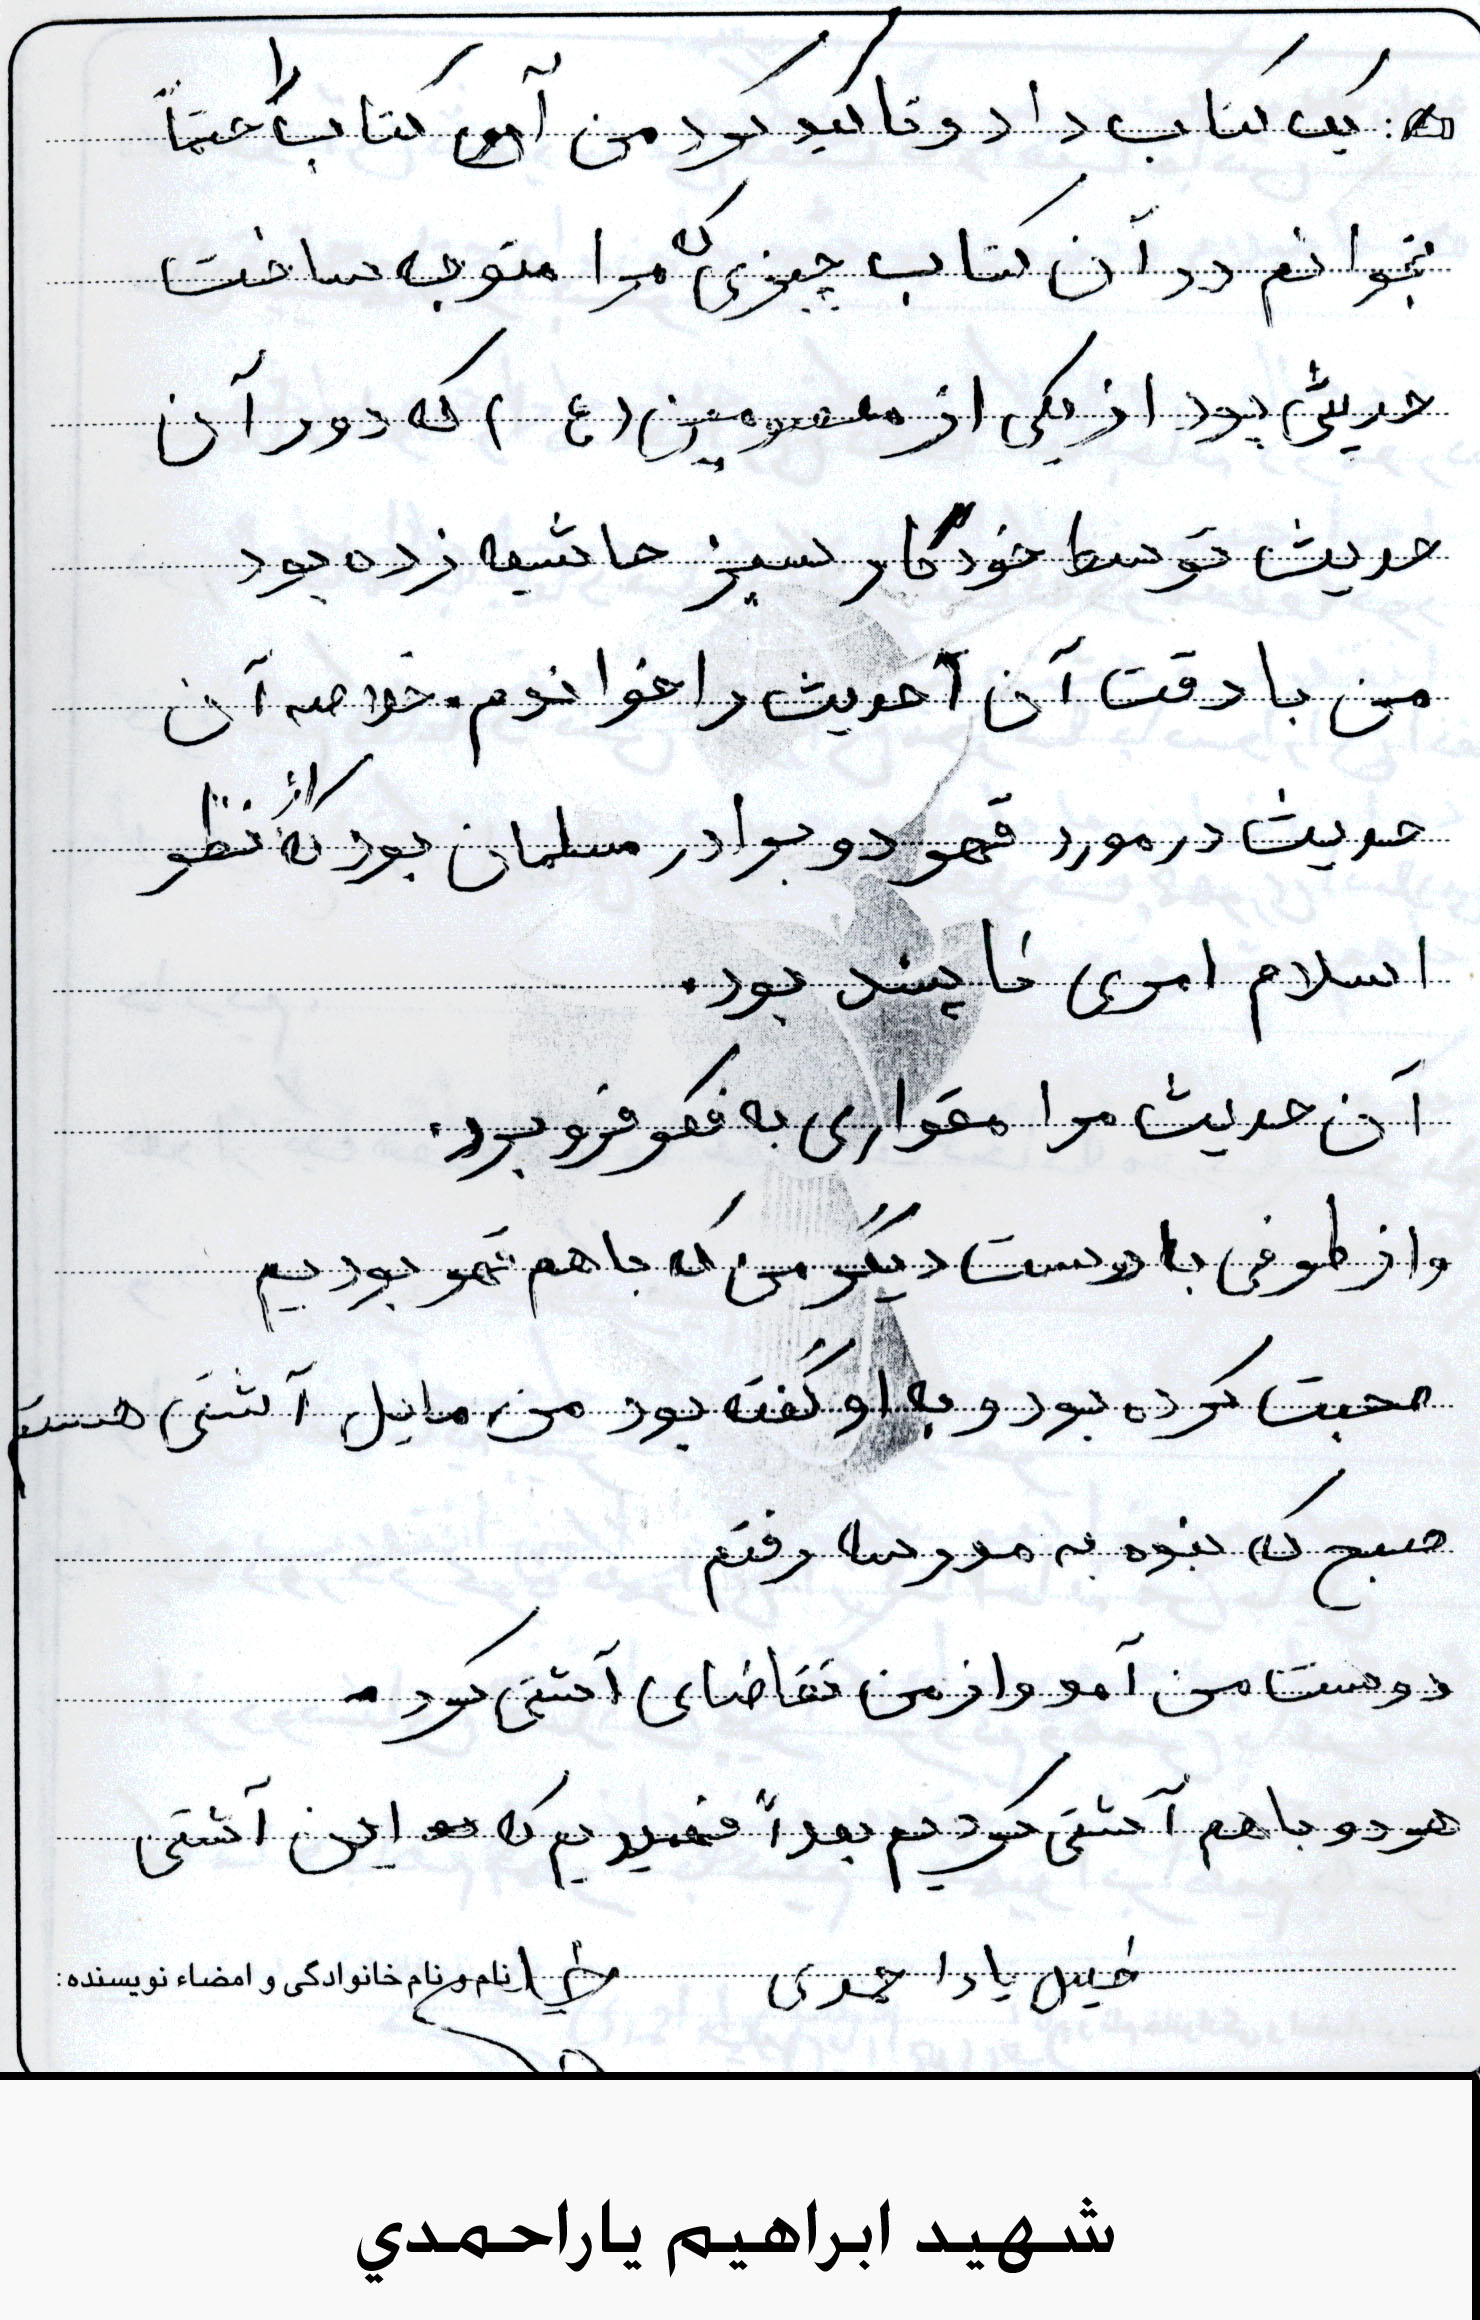 یک کتاب داد و تاکید کرد من آن کتاب را حتماً
بخوانم در آن کتاب چیزی که مرا متوجه ساخت
حدیثی بود از یکی از معصومین (ع) که دور آن
حدیث توسط خودکار سبز حاشیه زده بود
من با دقت آن حدیث را خواندم. خلاصه آن
حدیث در مورد قهر دو برادر مسلمان بود که از نظر
اسلام امری ناپسند بود.
آن حدیث مرا مقداری به فکر فرو برد.
و از طرفی با دوست دیگر من که با هم قهر بودیم
صحبت کرده بود و به او گفته بود من مایل آشتی هستم
صبح که بنده به مدرسه رفتم
دوست من آمد و از من تقاضای آشتی کرد.
هر دو با هم آشتی کردیم بعداً فهمیدیم که این آشتی
نام و نام خانوادگی و امضاء نویسنده: یاراحمدی
شهید ابراهیم یاراحمدي